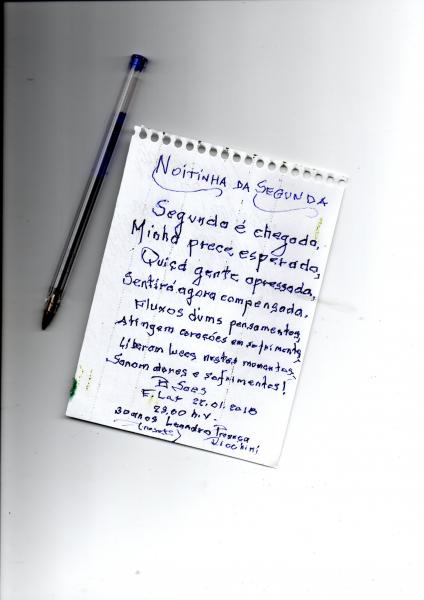 NOITINHA DA SEGUNDA
Segunda é chegada,
Minha prece, esperada,
Quiçá gente apressada,
Sentirá agora compensada.
Fluxos dums pensamentos,
Atingem corações em sofrimento,
Liberam luzes nestes momentos,
Sanam dores e sofrimentos!
B Saes
E. Lar 22.01.2018
23,00 h.v.
30 anos Leandro